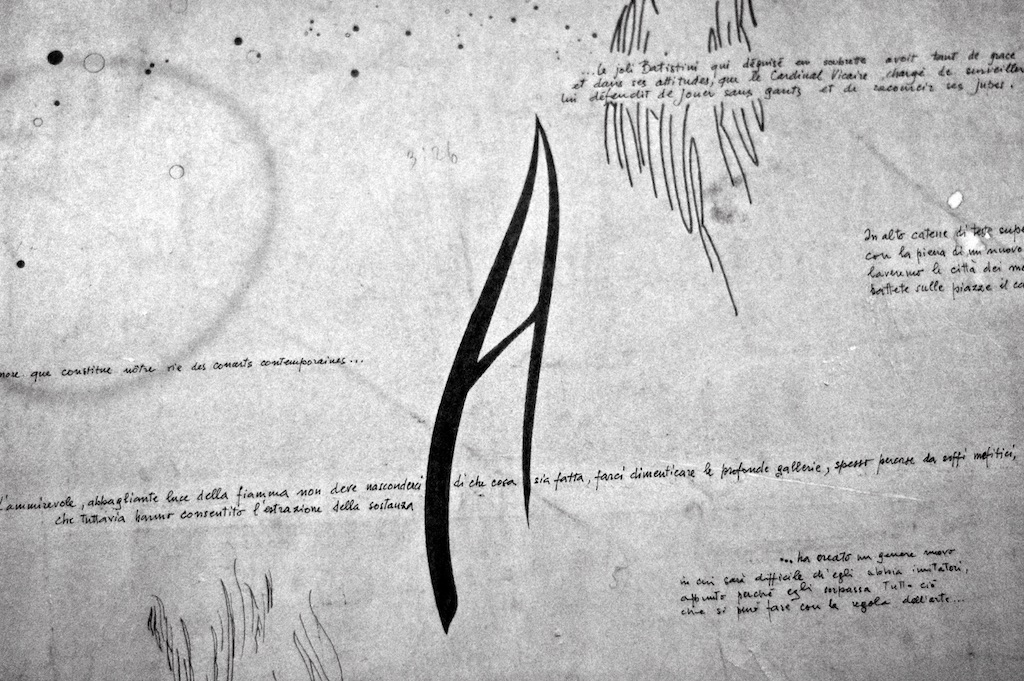 ...le joli Batistini qui déguisé en soubrete avoit tant de grace
et dans ses attitudes, que le Cardinal Vicaire, chargé de surveiller
lui défendit de jouer sans gants et de racourcir ses jupes.
3:26
In alto catene di teste supe
con la piena di un nuovo
laveremo le città dei mo
battete sulle piazze il ca
more que constitue nôtre vie des conarts contemporaines...
A
L'ammirevole, abbagliante luce della fiamma non deve nasconderci di che cosa sia fatta, farci dimenticare le profonde gallerie, spesso percorse da soffi mefitici,
che tuttavia hanno consentito l'estrazione della sostanza
...ha creato un genere nuovo
in cui sarà difficile ch'egli abbia imitatori,
appunto perché egli sorpassa tutto ciò
che si può fare con la regola dell'arte...